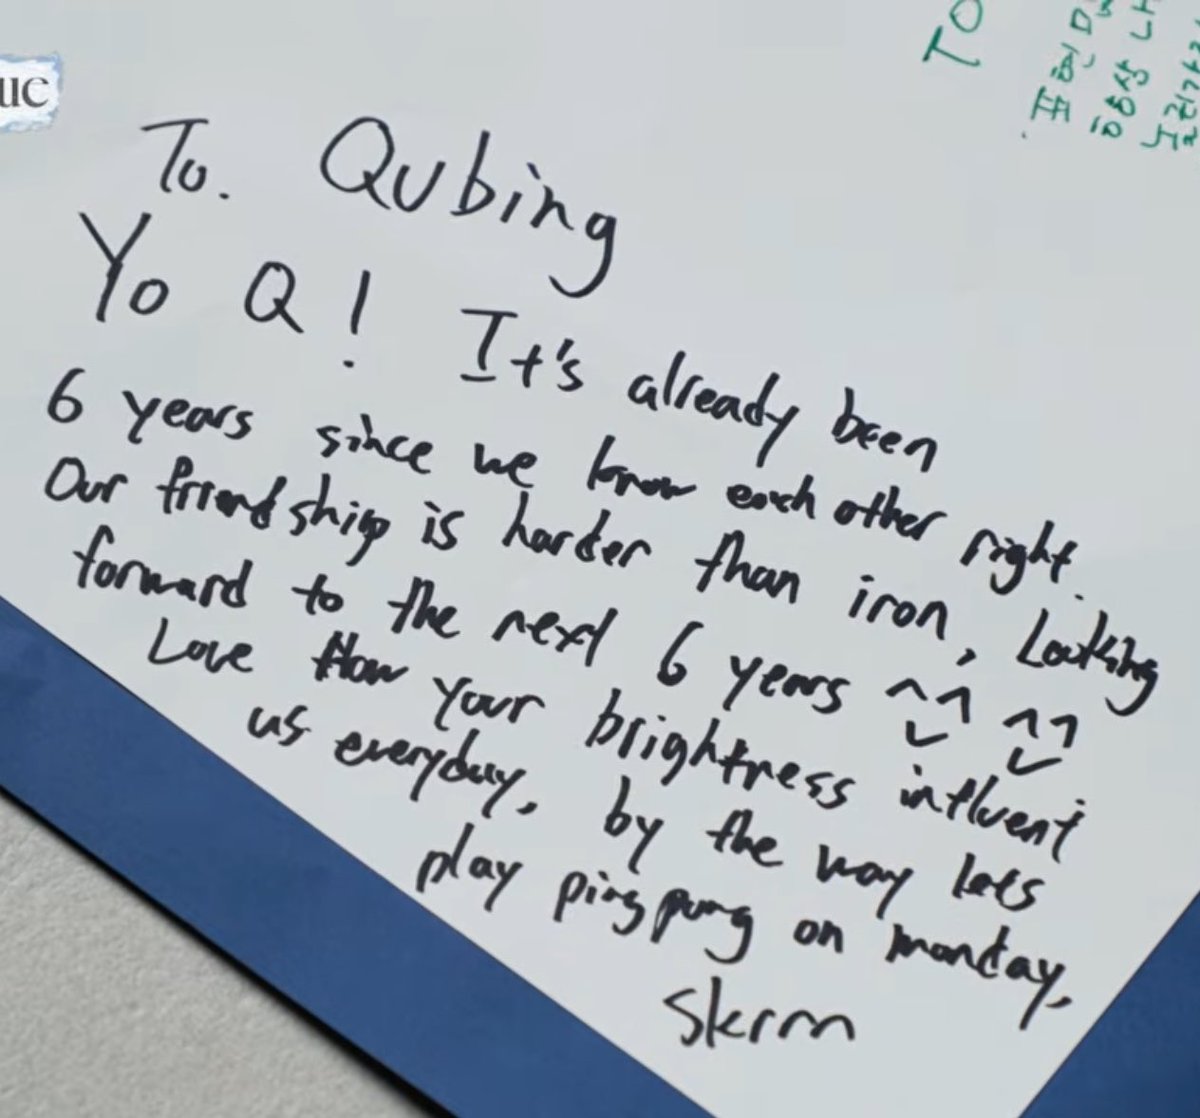 To. Qubing
Yo Q! It's already been
6 years since we know each other right.
Our friendship is harder than iron, Looking
forward to the next 6 years ^^ ^^
Love How your brightness influent
us everyday, by the way lets
play pingpung on monday,
Skrrn
TO
표현
항상